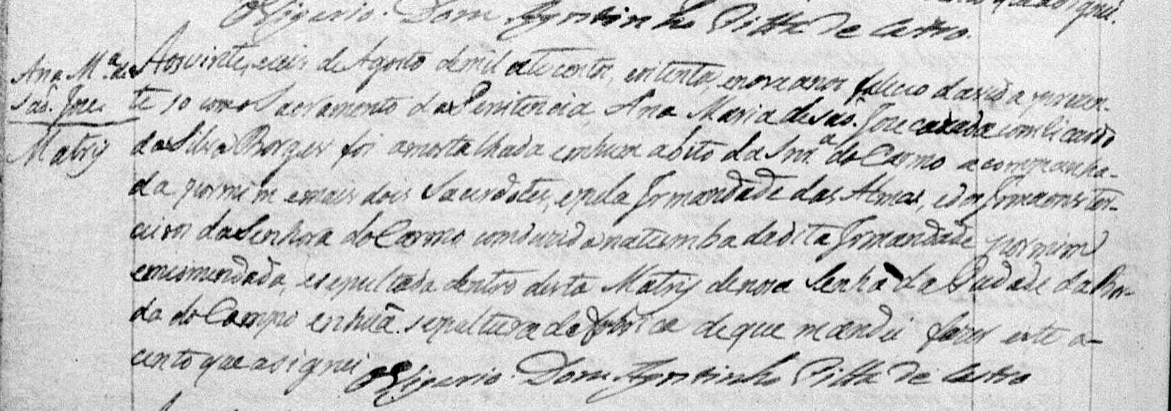 O Vigario. Dom Agostinho Pitta de Castro.
Ana M.ª de
São Joze
Matriz
Aos vinte, e seis de Agosto de mil sete centos, e oitenta, e nove anos faleceo da vida prezen-
te so com o Sacramento da Penitencia Ana Maria de São Joze cazada com
da Silva Borges foi amortalhada em hum abito da Snr.ª do Carmo acompanha-
da por mim e mais dois Sacerdotes, e pela Irmandade das Almas, e dos Irmaons ter-
ceiros da Senhora do Carmo conduzida na tumba da dita Irmandade por mim
encomendada, e sepultada dentro desta Matriz de nosa Senhª da Piedade da Bor-
da do Campo em huã sepultura da fabrica de que mandei fazer este a-
cento que asignei
O Vigario. Dom Agostinho Pitta de Castro